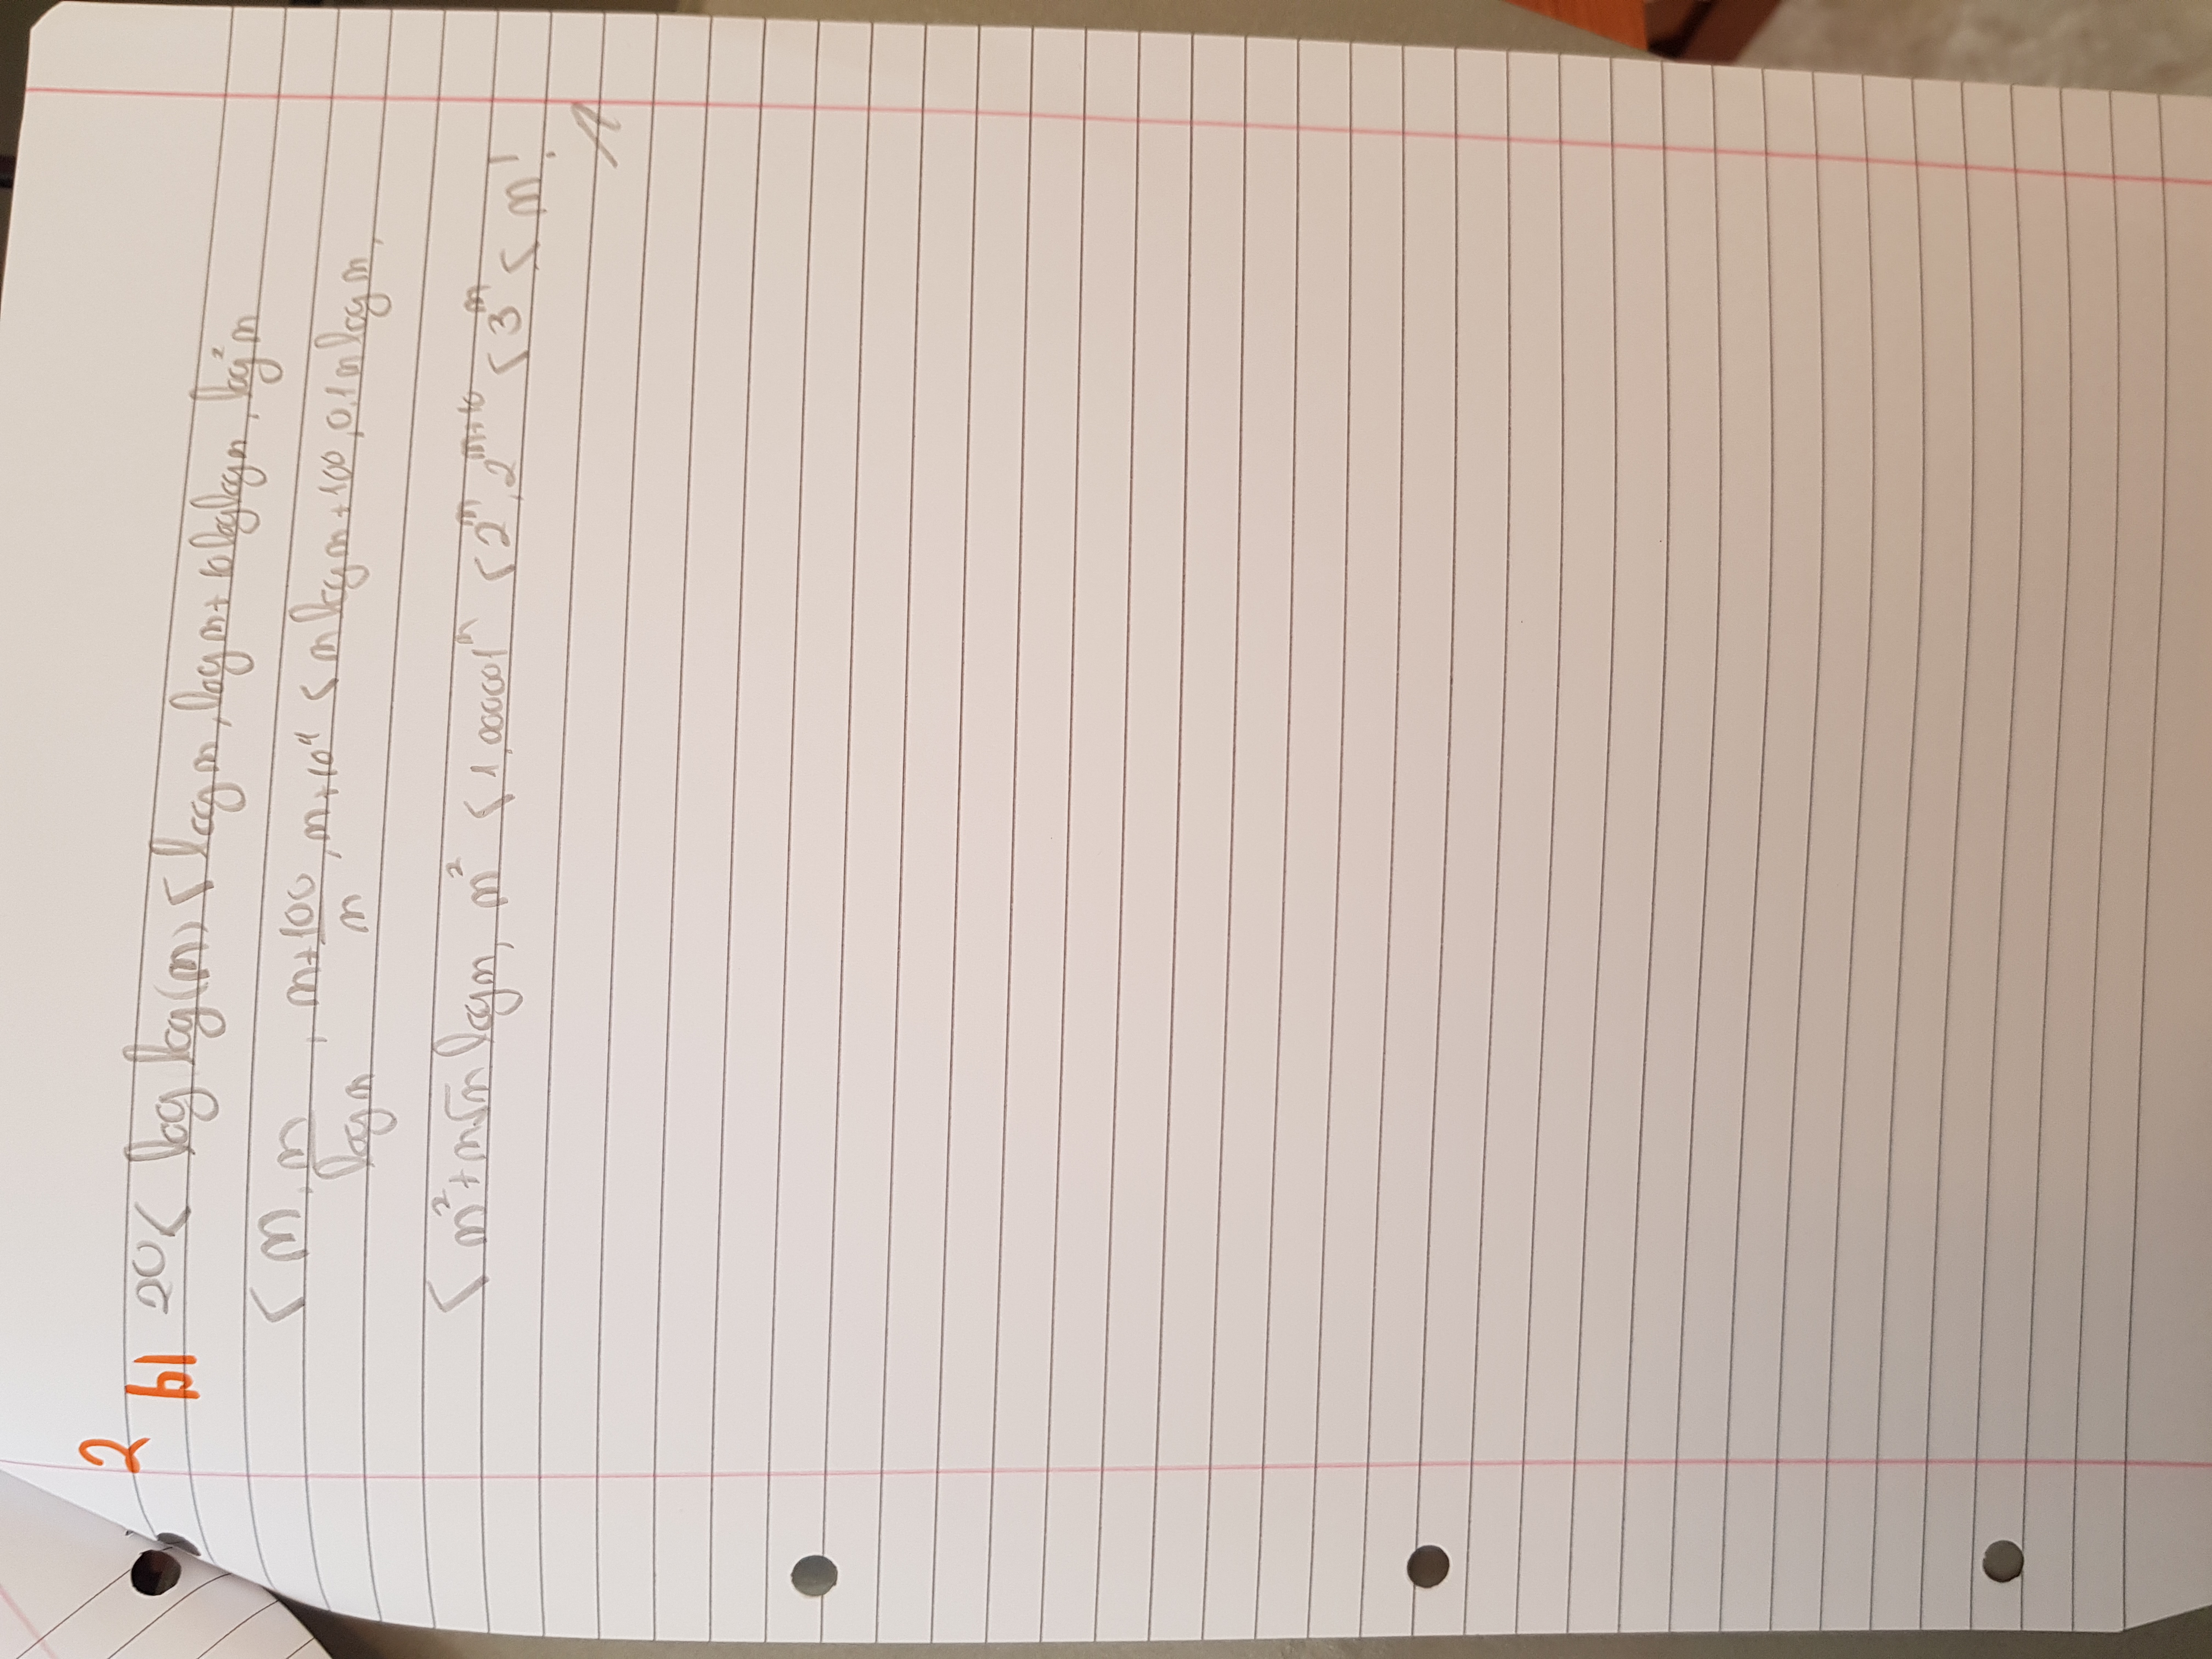 2
b) 20 < log log(n) < log n, log n + 10 log log n, log² n
< n, n/log n, n + 100/n, n + 10⁴ < n log n + 100, 0.1 n log n,
< n² + n√n log n, n² < 1,000001ⁿ < 2ⁿ, 2ⁿ⁺¹⁰ < 3ⁿ < n!